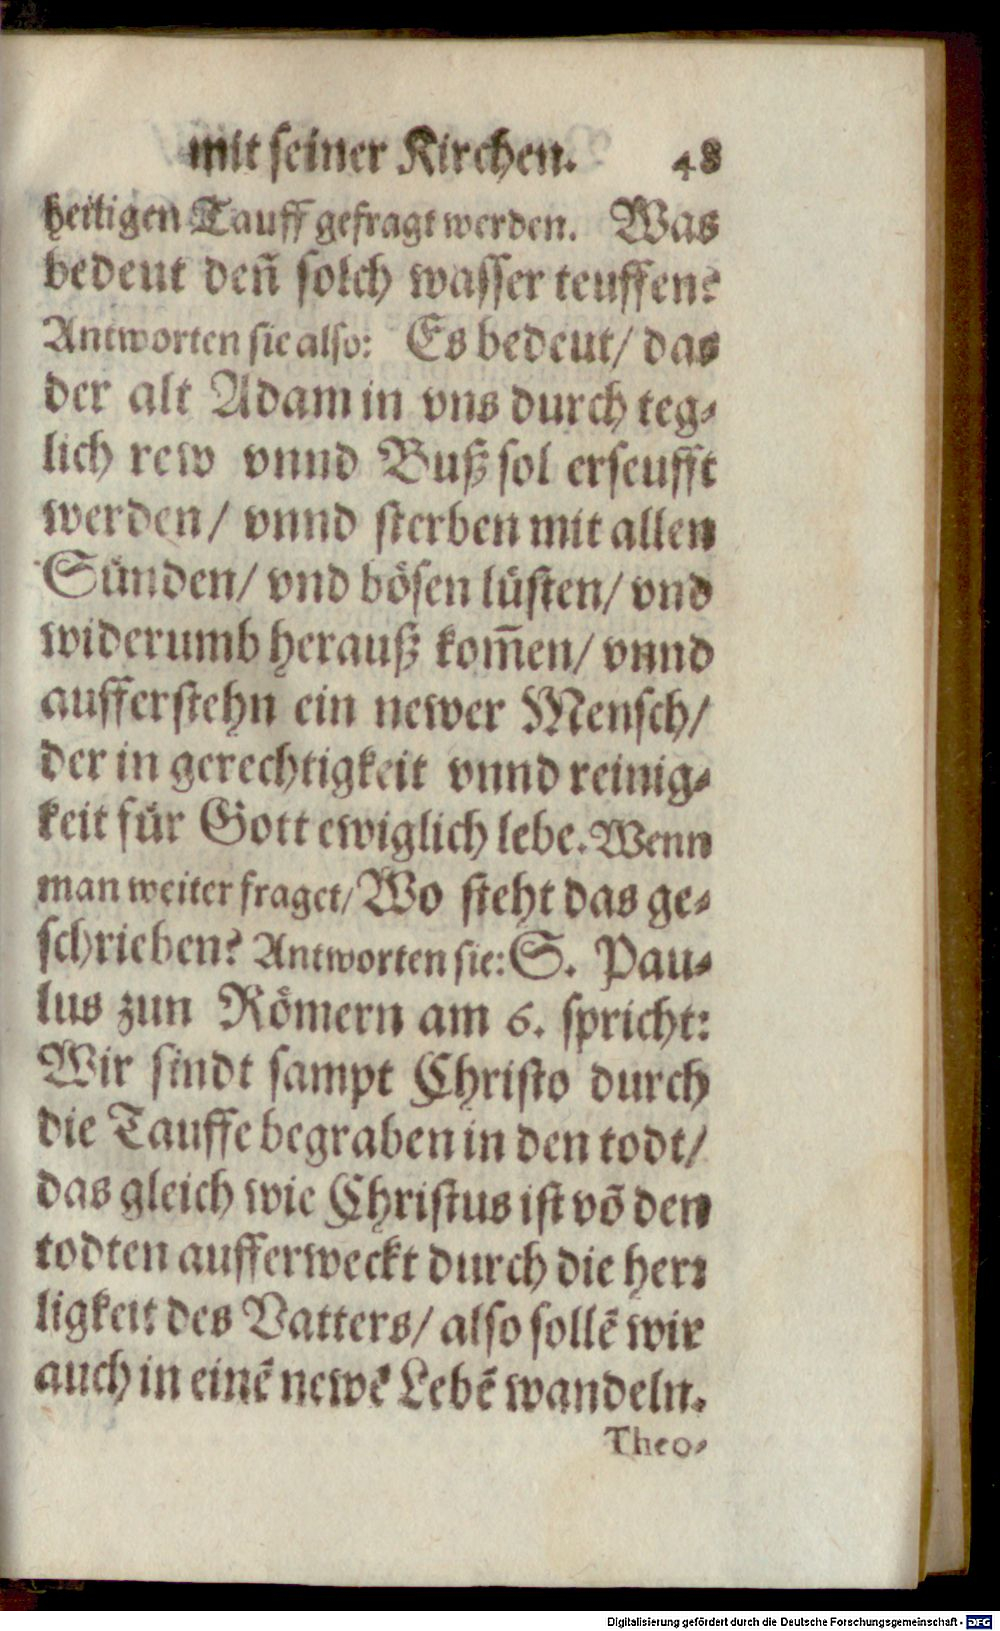 mit seiner Kirchen. 48
heiligen Tauff gefragt werden. Was
bedeut den̄ solch wasser teuffen?
Antworten sie also: Es bedeut/ das
der alt Adam in vns durch teg-
lich rew vnnd Buß sol erseufft
werden/ vnnd sterben mit allen
Sünden/ vnd bösen lüsten/ vnd
widerumb herauß kom̄en/ vnnd
aufferstehn ein newer Mensch/
der in gerechtigkeit vnnd reinig-
keit für Gott ewiglich lebe. Wenn
man weiter fraget/ Wo steht das ge-
schrieben? Antworten sie: S. Pau-
lus zun Römern am 6. spricht:
Wir sindt sampt Christo durch
die Tauffe begraben in den todt/
das gleich wie Christus ist võ den
todten aufferweckt durch die herr
ligkeit des Vatters/ also sollẽ wir
auch in einẽ newẽ Lebẽ wandeln.
Theo-
Digitalisierung gefördert durch die Deutsche Forschungsgemeinschaft - DFG